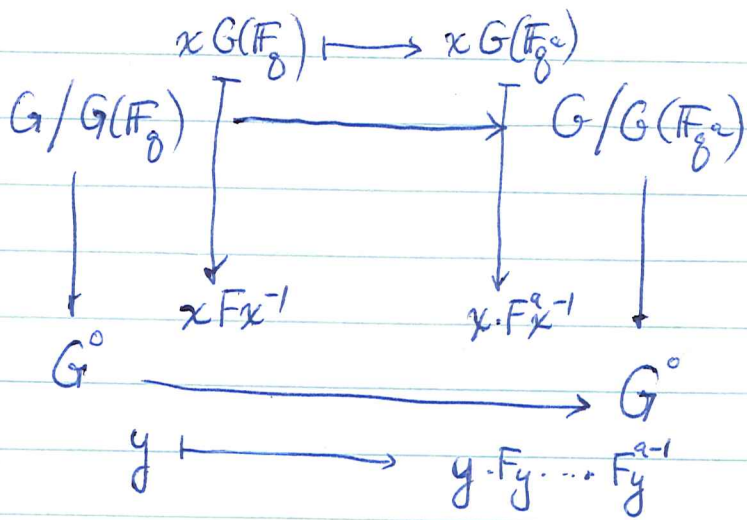 x G(𝔽_q) ↦ x G(𝔽_{q^a})
G/G(𝔽_q) → G/G(𝔽_{q^a})
x F x^{-1} x · F^a x^{-1}
G° → G°
y ↦ y · Fy · ... · F^{a-1} y